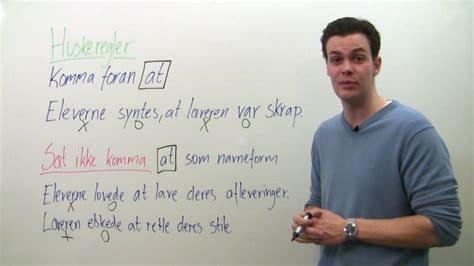 Huskeregler
Komma foran at
Eleverne syntes, at læreren var skrap.
x o x o
Sæt ikke komma at som navneform
Eleverne lovede at lave deres afleveringer.
x o
Læreren elskede at rette deres stile.
x o